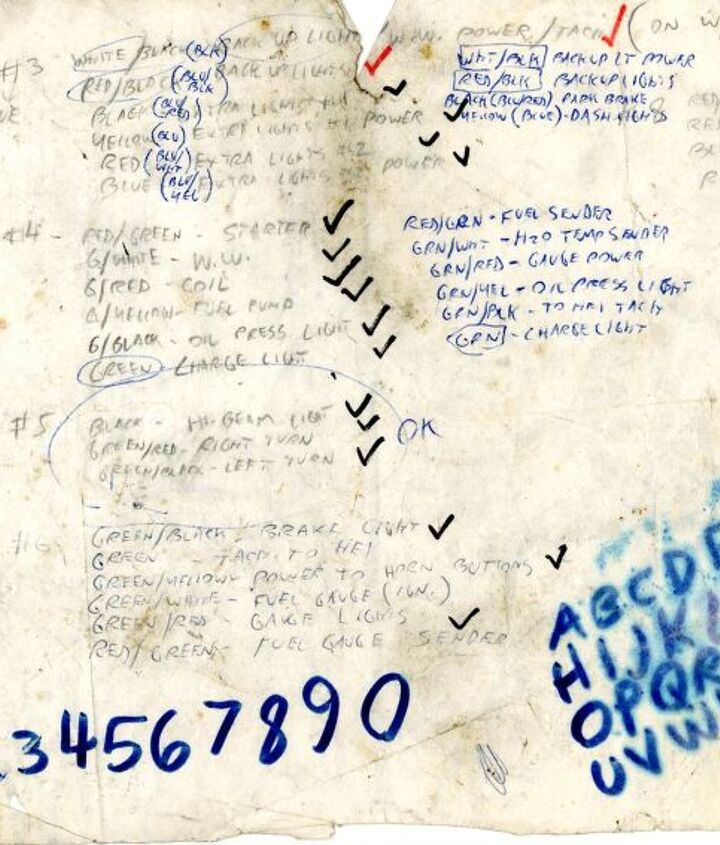 W.W. POWER/TACH (ON W
#3 - WHITE/BLACK (BLK) BACK UP LIGHT
RED/BLACK (BLU/BLK) BACKUP LIGHTS
BLACK (BLU/RED) EXTRA LIGHTS
YELLOW (BLU) EXTRA LIGHTS POWER
RED (BLU/WHT) EXTRA LIGHTS #2
BLUE (BLU/YEL) EXTRA LIGHTS POWER
WHT/BLK BACKUP LT POWER
RED/BLK BACKUP LIGHTS
BLACK (BLU/RED) PARK BRAKE
YELLOW (BLUE) - DASH LIGHTS
RED
RED
BL
R
#4 - RED/GREEN - STARTER
G/WHITE - W.W.
G/RED - COIL
G/YELLOW - FUEL PUMP
G/BLACK - OIL PRESS LIGHT
GREEN - CHARGE LIGHT
RED/GRN - FUEL SENDER
GRN/WHT - H2O TEMP SENDER
GRN/RED - GAUGE POWER
GRN/YEL - OIL PRESS LIGHT
GRN/BLK - TO HEI TACH
GRN - CHARGE LIGHT
#5 BLACK - HI-BEAM LIGHT
GREEN/RED - RIGHT TURN
GREEN/BLACK - LEFT TURN
OK
#6 GREEN/BLACK - BRAKE LIGHT
GREEN - TACH TO HEI
GREEN/YELLOW - POWER TO HORN BUTTONS
GREEN/WHITE - FUEL GAUGE (IGN.)
GREEN/RED - GAUGE LIGHTS
RED/GREEN - FUEL GAUGE SENDER
34567890
ABCDE
HIJK
OPQR
UVW